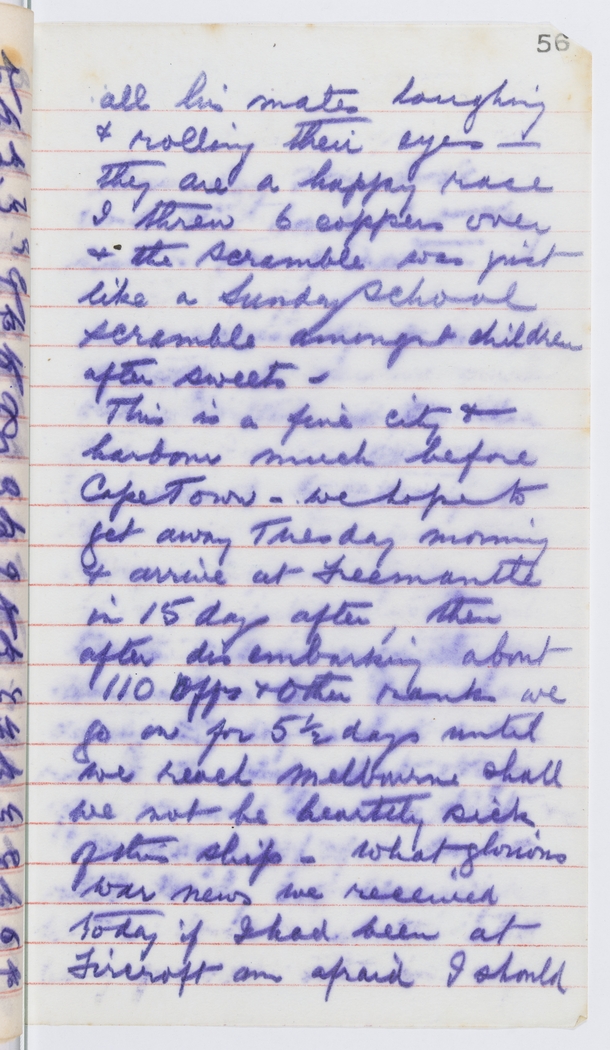 56
all his mates laughing
& rolling their eyes —
they are a happy race
I threw 6 coppers over
& the scramble was just
like a Sunday School
scramble amongst children
after sweets -
This is a fine city &
harbour much before
Cape Town - we hope to
get away Tuesday morning
& arrive at Freemantle
in 15 days after, then
after disembarking about
110 Offs & Other ranks we
go on for 5½ days until
we reach Melbourne shall
we not be heartily sick
of this ship - what glorious
war news we received
today if I had been at
Fircroft am afraid I should